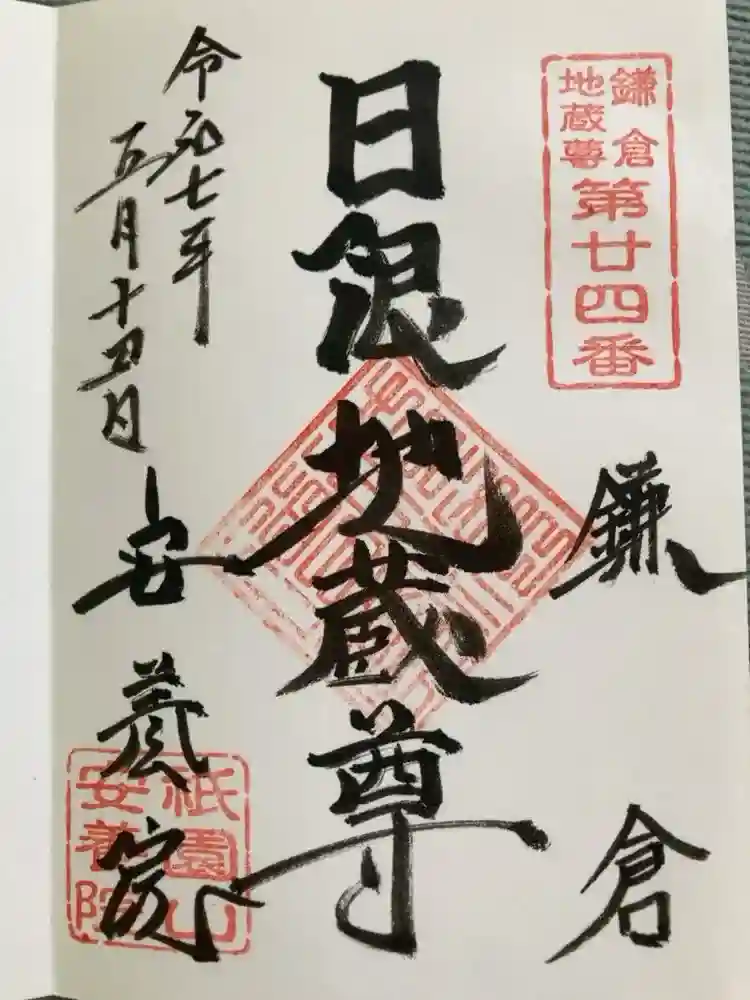 鎌倉
地蔵尊
第廿四番
鎌倉
日限地蔵尊
令和七年
五月十四日
安養院
祇園山
安養院